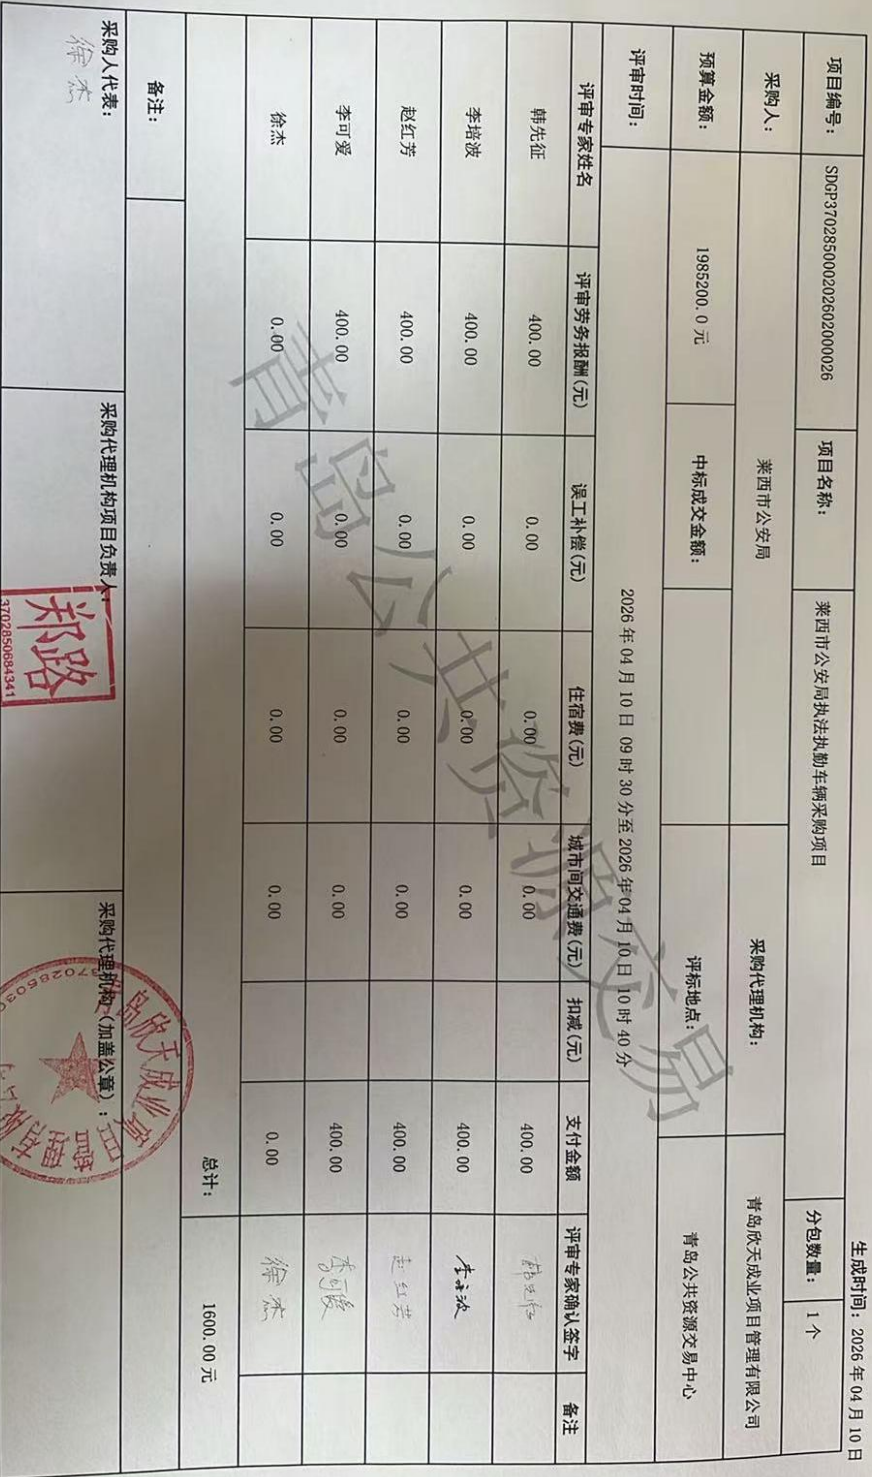 生成时间：2026 年 04 月 10 日
项目编号： SDGP370285000202602000026 项目名称： 莱西市公安局执法执勤车辆采购项目 分包数量： 1 个
采购人： 莱西市公安局 采购代理机构： 青岛欣天成业项目管理有限公司
预算金额： 1985200.0 元 中标成交金额： 评标地点： 青岛公共资源交易中心
评审时间： 2026 年 04 月 10 日 09 时 30 分至 2026 年 04 月 10 日 10 时 40 分
评审专家姓名 评审劳务报酬(元) 误工补偿(元) 住宿费(元) 城市间交通费(元) 扣减(元) 支付金额 评审专家确认签字 备注
韩先征 400.00 0.00 0.00 0.00 400.00 韩先征
李培波 400.00 0.00 0.00 0.00 400.00 李培波
赵红芳 400.00 0.00 0.00 0.00 400.00 赵红芳
李可爱 400.00 0.00 0.00 0.00 400.00 李可爱
徐杰 0.00 0.00 0.00 0.00 0.00 徐杰
总计： 1600.00 元
备注：
采购人代表： 采购代理机构项目负责人： 采购代理机构（加盖公章）：
徐杰
郑路
3702850684341
青岛公共资源交易